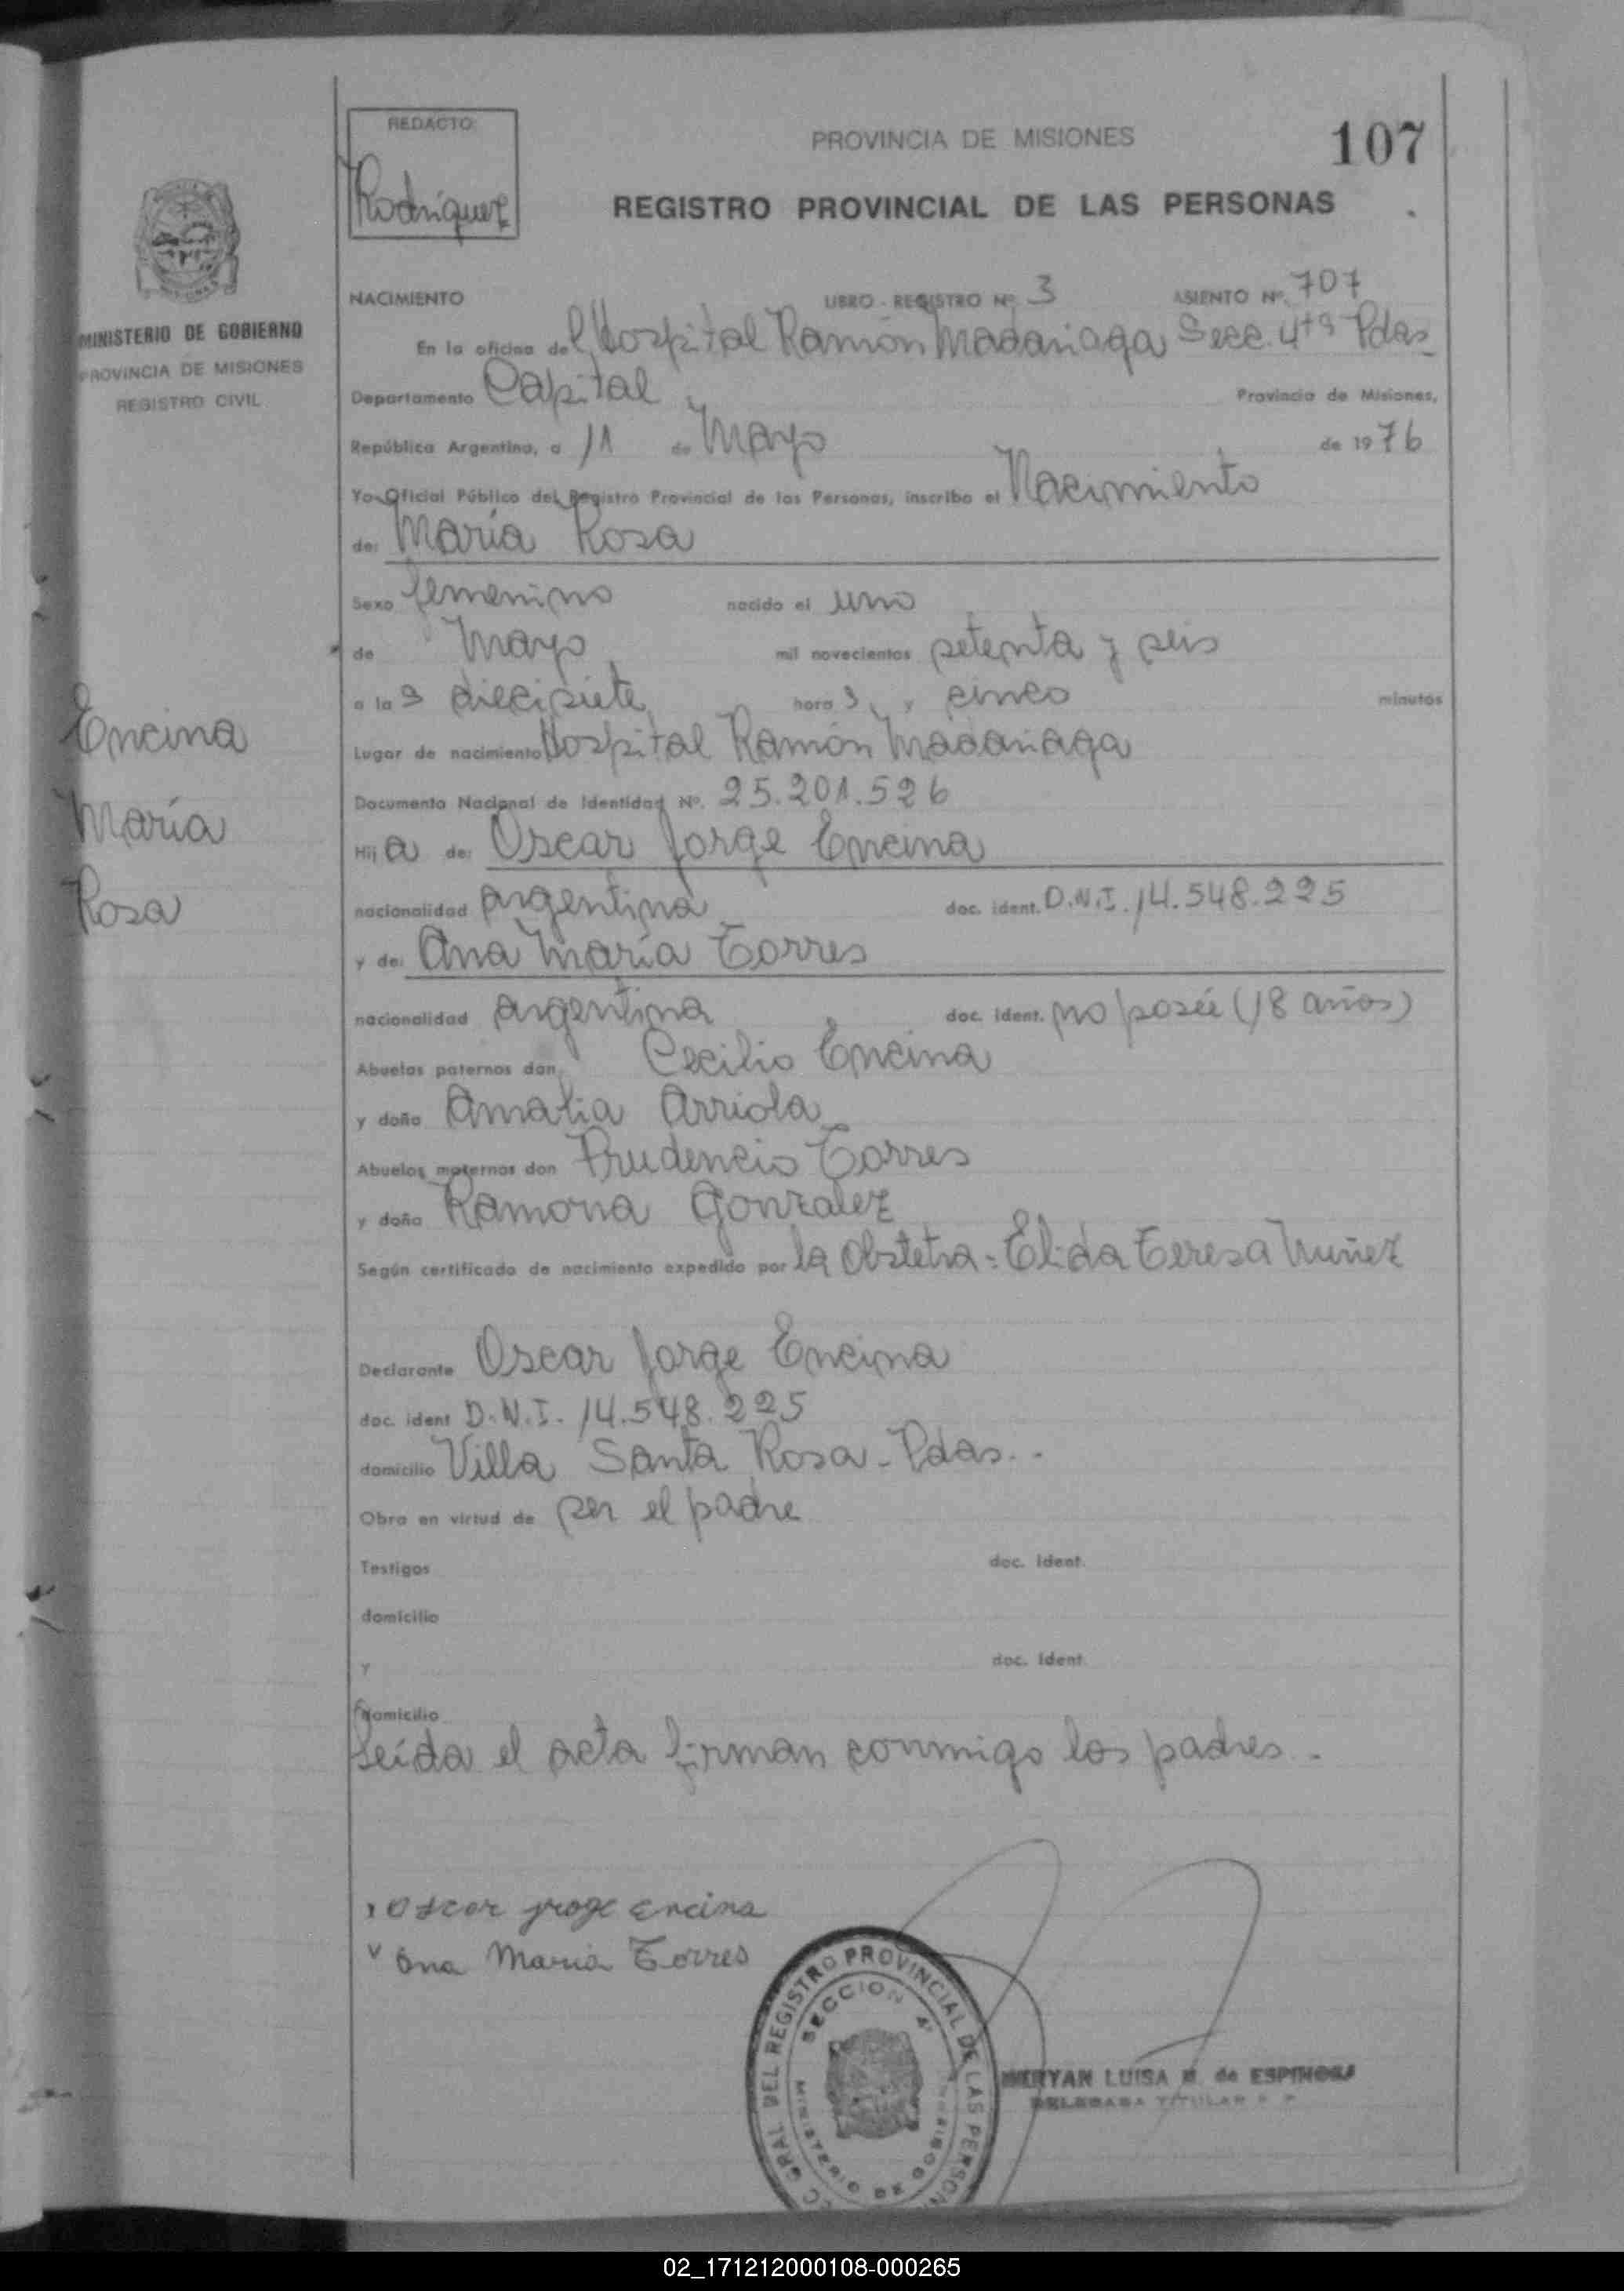 REDACTO:
Rodriguez
PROVINCIA DE MISIONES
107
REGISTRO PROVINCIAL DE LAS PERSONAS
MINISTERIO DE GOBIERNO
PROVINCIA DE MISIONES
REGISTRO CIVIL
NACIMIENTO LIBRO - REGISTRO Nº. 3 ASIENTO Nº. 707
En la oficina del Hospital Ramón Madariaga Secc. 4ta Pdas
Departamento Capital Provincia de Misiones,
República Argentina, a 11 de Mayo de 1976
Yo Oficial Público del Registro Provincial de las Personas, inscribo el Nacimiento
de: María Rosa
Sexo femenino nacido el uno
de Mayo mil novecientos setenta y seis
a las diecisiete horas y cinco minutos
Lugar de nacimiento Hospital Ramón Madariaga
Documento Nacional de Identidad Nº. 25.201.526
Hija de: Oscar Jorge Encina
nacionalidad argentina doc. ident. D.N.I. 14.548.225
y de: Ana María Torres
nacionalidad argentina doc. ident. no poseé (18 años)
Abuelos paternos don Cecilio Encina
y doña Amalia Arriola
Abuelos maternos don Prudencio Torres
y doña Ramona Gonzalez
Según certificado de nacimiento expedido por la Obstetra: Elida Teresa Nuñez
Declarante Oscar Jorge Encina
doc. ident D.N.I. 14.548.225
domicilio Villa Santa Rosa - Pdas. -
Obra en virtud de ser el padre
Testigos doc. ident.
domicilio
y doc. ident.
domicilio
Leída el acta firman conmigo los padres. -
Encina
María
Rosa
Oscar jroge encina
Ana Maria Torres
GRAL DEL REGISTRO PROVINCIAL DE LAS PERSON
SECCION 4ª
MINISTERIO DE
MERYAN LUISA de ESPINOSA
DELEGADA TITULAR
02_171212000108-000265